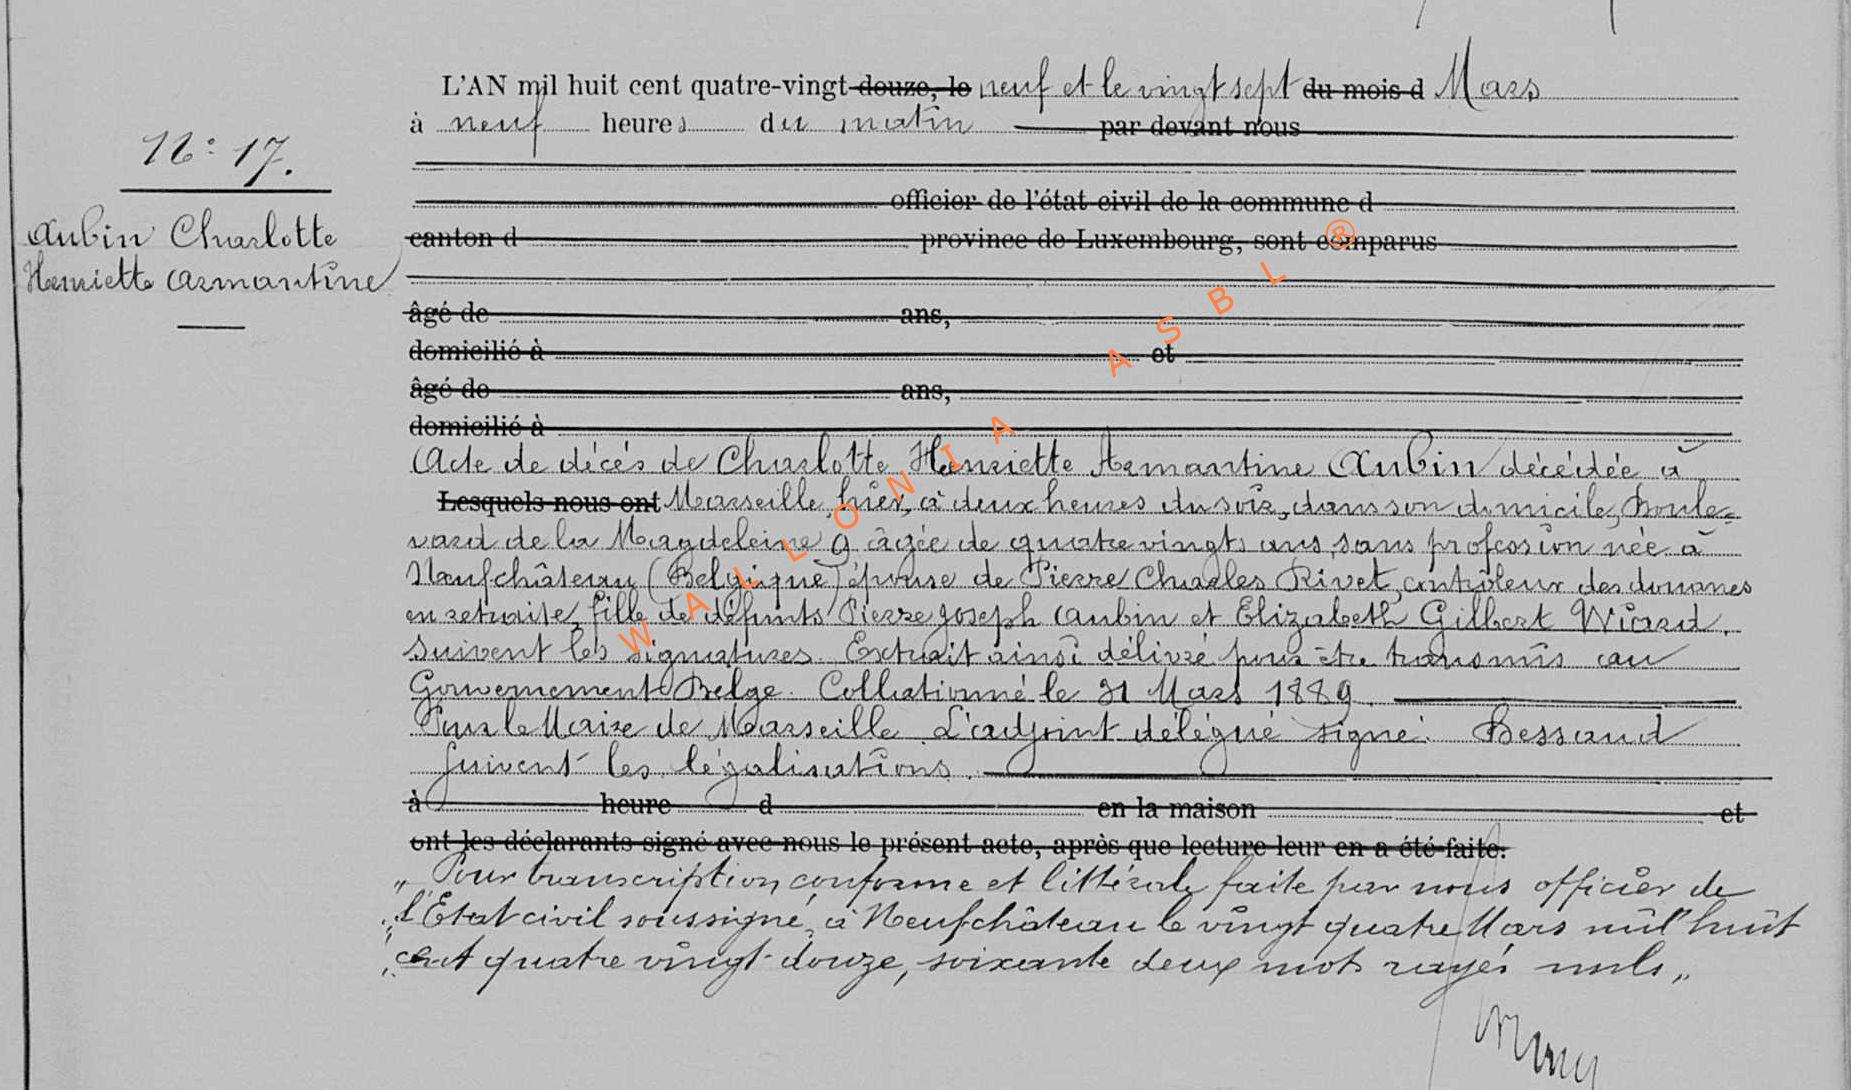 L'AN mil huit cent quatre-vingt douze, le neuf et le vingt sept du mois d Mars
à neuf heures du matin par devant nous
N° 17.
officier de l'état civil de la commune d
Aubin Charlotte
canton d province de Luxembourg, sont comparus
Henriette Armantine
âgé de ans,
domicilié à et
âgé de ans,
domicilié à
Acte de décès de Charlotte Henriette Armantine Aubin décédée à
Lesquels nous ont Marseille, hier, à deux heures du soir, dans son domicile, Boule=
vard de la Magdeleine 9 âgée de quatre vingts ans, sans profession née à
Neufchâteau (Belgique) épouse de Pierre Charles Rivet, contrôleur des douanes
en retraite, fille de défunts Pierre Joseph Aubin et Elizabeth Gilbert Wiard.
Suivent les signatures. Extrait ainsi délivré pour être transmis au
Gouvernement Belge. Collationné le 21 Mars 1889.
Pour le Maire de Marseille. L'adjoint délégué signé: Bessaud
Suivent les légalisations.
à heure d en la maison et
ont les déclarants signé avec nous le présent acte, après que lecture leur en a été faite.
„ Pour transcription conforme et littérale faite par nous officier de
„ l'Etat civil soussigné, à Neufchâteau le vingt quatre Mars mil huit
„ cent quatre vingt-douze, soixante deux mots rayés nuls „
WALLONIA ASBL ®